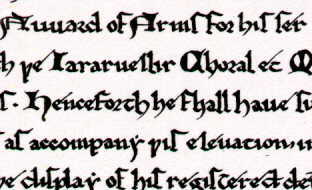 Award of Arms for his ser
h ye Iararveshir Choral et
s. Henceforth he shall haue su
as accompany yis eleuation, in
ye display of his registered de